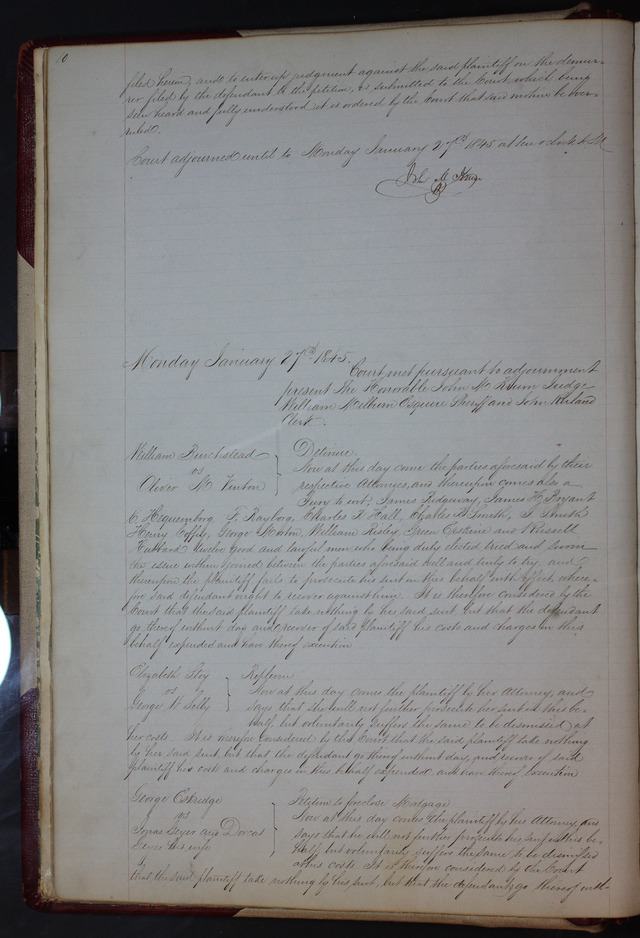 10
filed herein, and to enter up judgment against the said plaintiff on the demur-
rer filed by the defendant to the petition, is submitted to the Court, which being
seen heard and fully understood it is ordered by the Court that said motion be over-
ruled.
Court adjourned until to Monday January 27th 1845 at ten o'clock A M
John M Krum
Monday January 27th 1845.
Court met pursuant to adjournment
present the Honorable John M Krum Judge
William Milburn Esquire Sheriff and John Ruland
Clerk.
William Burchstead
vs
Oliver M Vinton
Detinue.
Now at this day come the parties aforesaid by their
respective Attorneys, and thereupon comes also a
Jury to wit; James Ridgeway, James H Bryant
C. Hequembourg F. Rayborg, Charles F Hall, Charles H Smith, Smith
Henry Coffey, George Morton, William Risley, Green Erskine and Russell
Hubbard twelve good and lawful men who being duly elected tried and sworn
the issue within joined between the parties aforesaid well and truly to try and
thereupon the plaintiff fails to prosecute his suit in this behalf with effect, where-
fore said defendant ought to recover against him. It is therefore considered by the
Court that the said plaintiff take nothing by his said suit but that the defendant
go thereof without day and recover of said plaintiff his costs and charges in this
behalf expended and have thereof execution
Elizabeth Stoy
vs
George W Selby
Replevin
Now at this day comes the plaintiff by her Attorney, and
says that she will not further prosecute her suit in this be-
half, but voluntarily suffers the same to be dismissed at
her costs. It is therefore considered by the Court that the said plaintiff take nothing
by her said suit, but that the defendant go thereof without day, and recover of said
plaintiff his costs and charges in this behalf expended and have thereof execution
George Eskridge
vs
Jonas Geyer and Dorcas
Geyer his wife
Petition to foreclose Mortgage
Now at this day comes the plaintiff by his Attorney, and
says that he will not further prosecute his suit in this be-
half, but voluntarily suffers the same to be dismissed
at his costs. It is therefore considered by the Court
that the said plaintiff take nothing by his suit, but that the defendants go thereof with-